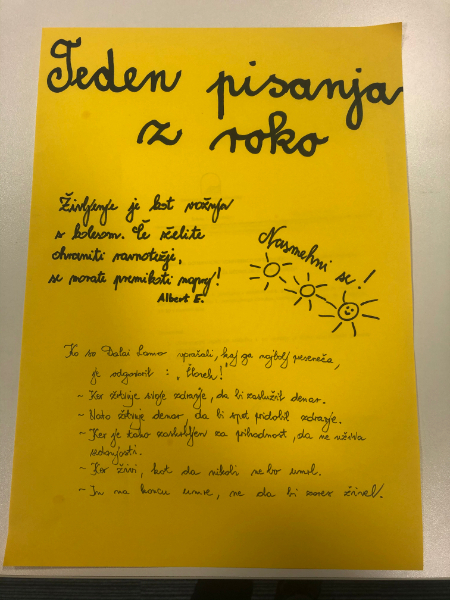 Teden pisanja
z roko
Življenje je kot vožnja
s kolesom. Če želite
ohraniti ravnotežje,
se morate premikati naprej!
Albert E.
Nasmehni se!
Ko so Dalai Lamo vprašali, kaj ga najbolj preseneča,
je odgovoril: "Človek!"
- Ker žrtvuje svoje zdravje, da bi zaslužil denar.
- Nato žrtvuje denar, da bi spet pridobil zdravje.
- Ker je tako zaskrbljen za prihodnost, da ne uživa
sedanjosti.
- Ker živi, kot da nikoli ne bo umrl.
- In na koncu umre, ne da bi zares živel.